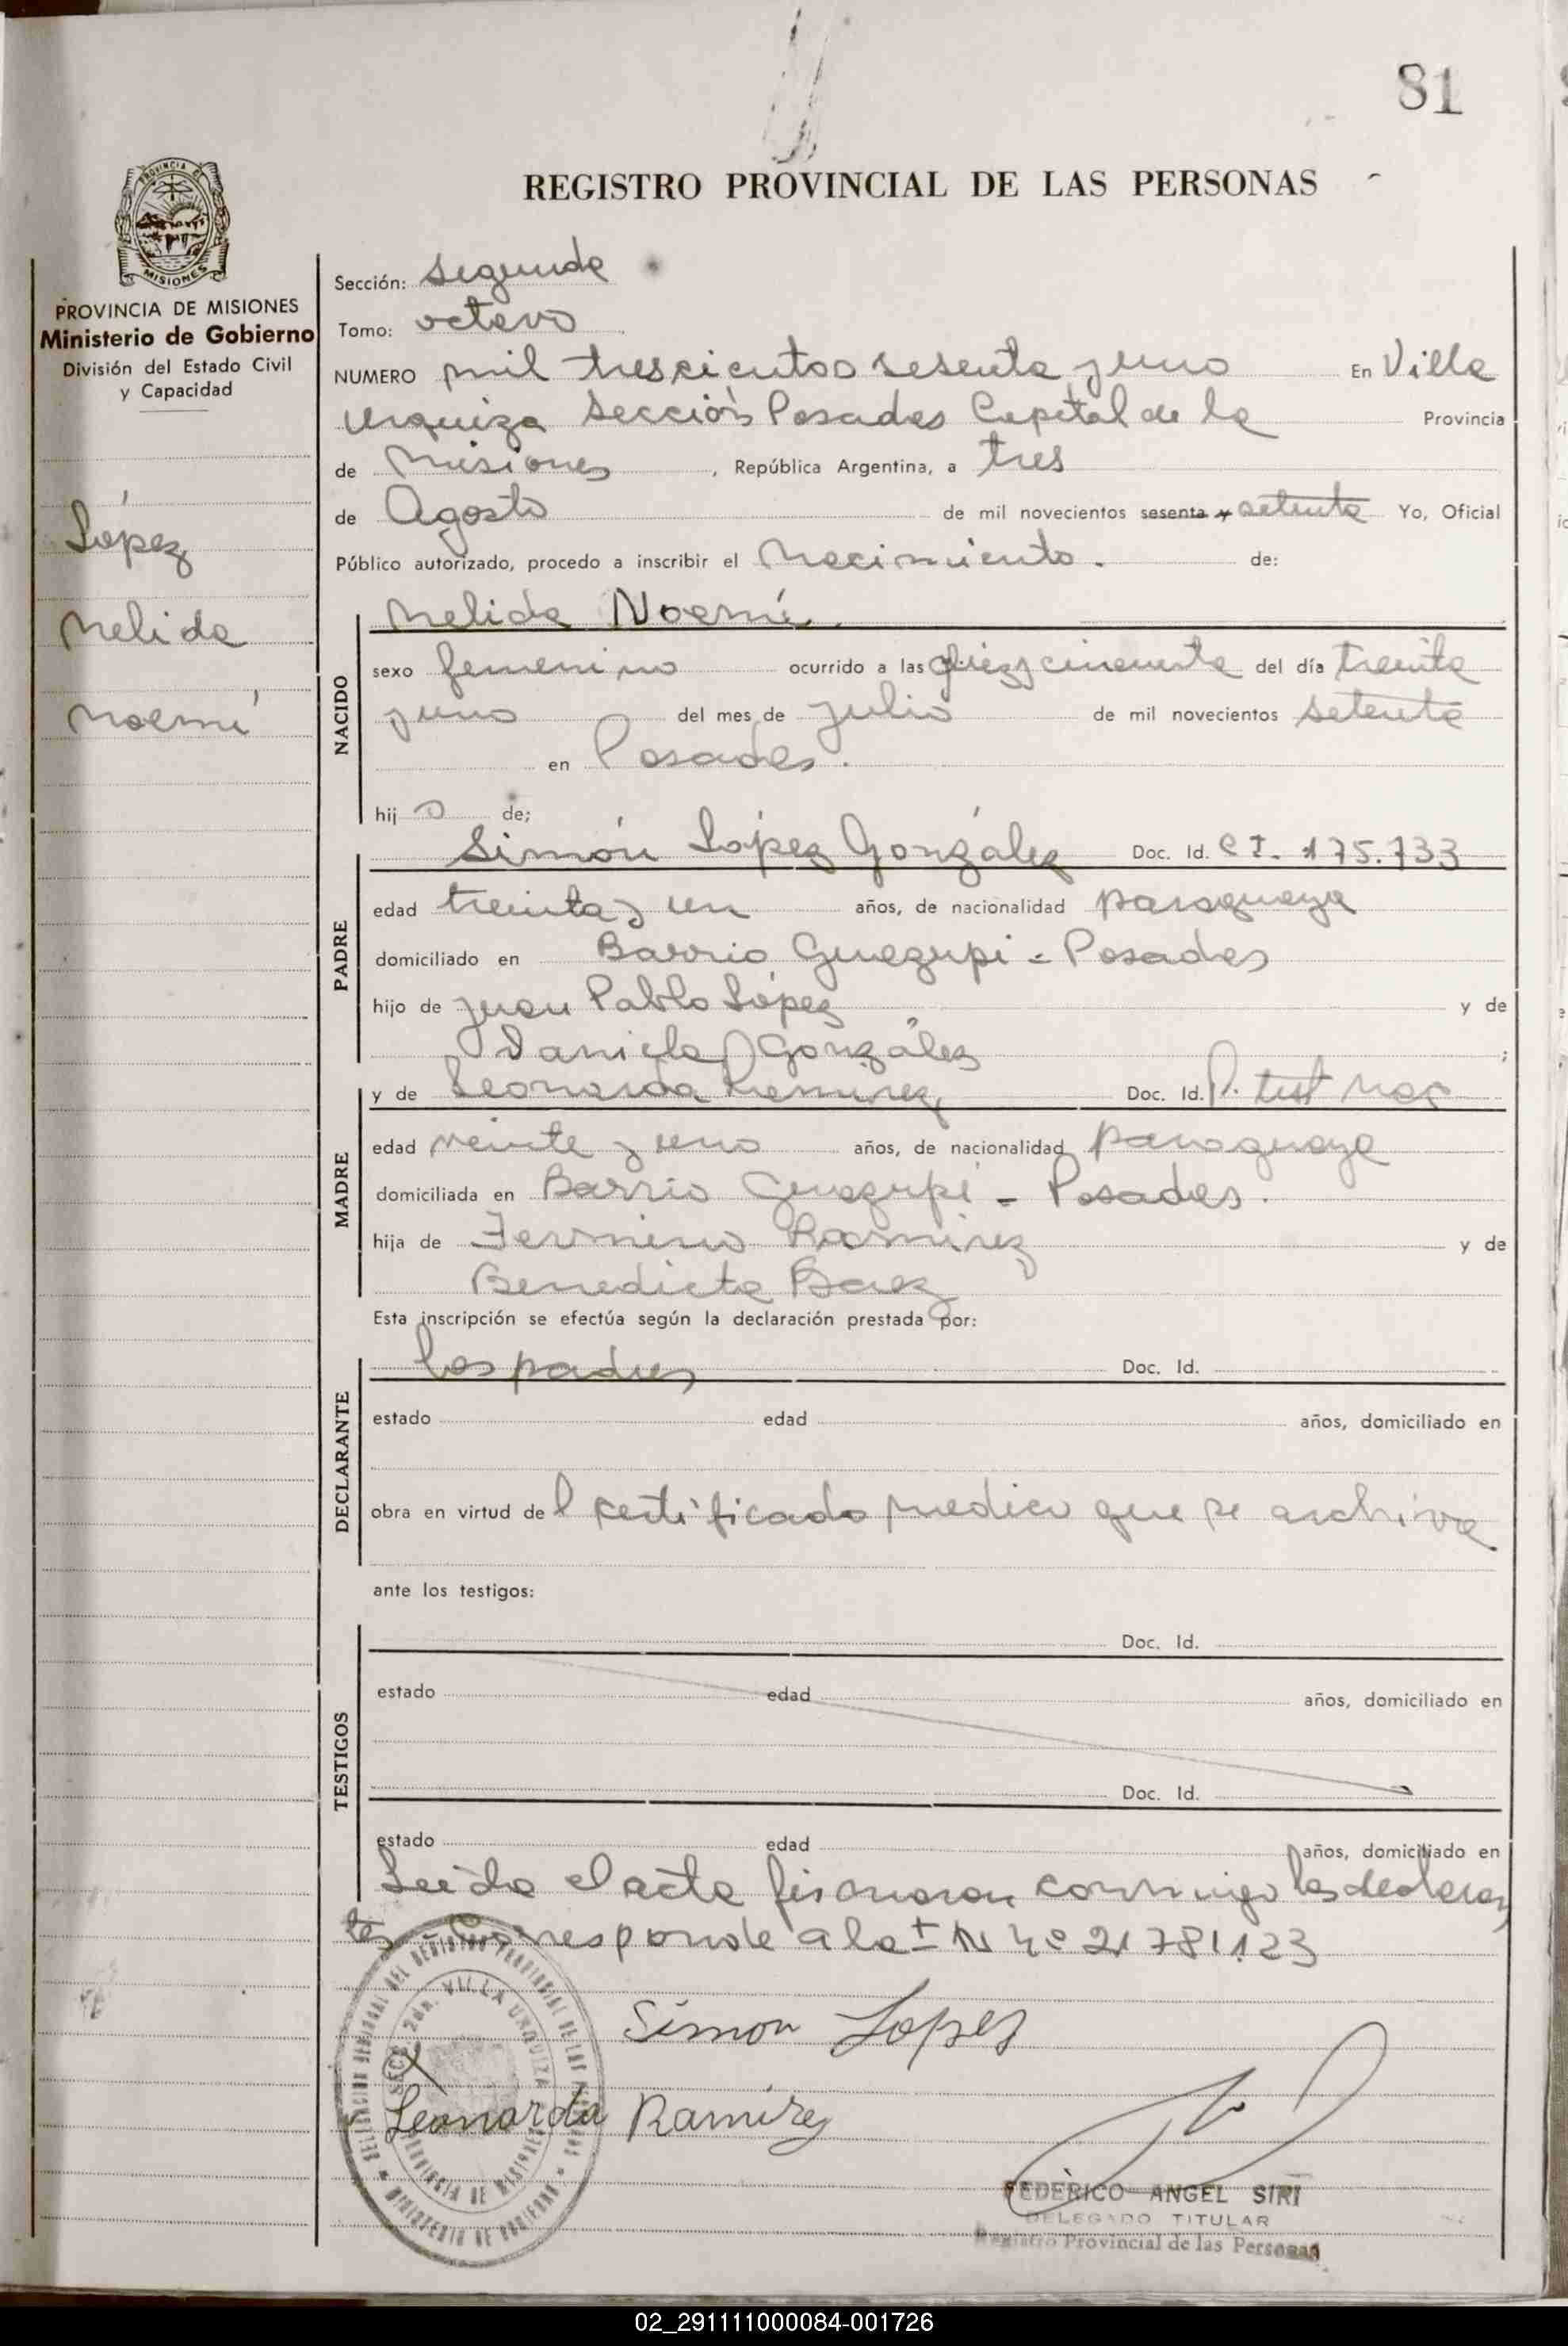 81
REGISTRO PROVINCIAL DE LAS PERSONAS
PROVINCIA DE MISIONES
Ministerio de Gobierno
División del Estado Civil
y Capacidad
López
Nelida
Noemí
Sección: Segunda
Tomo: octavo
NUMERO mil trescientos sesenta y uno En Villa
Urquiza Sección Posadas Capital de la Provincia
de Misiones, República Argentina, a tres
de Agosto de mil novecientos sesenta y setenta Yo, Oficial
Público autorizado, procedo a inscribir el Nacimiento. de:
NACIDO
Nelida Noemí.
sexo femenino ocurrido a las diez y cincuenta del día treinta
y uno del mes de julio de mil novecientos setenta
en Posadas.
hij de;
PADRE
Simón López González Doc. Id. CI. 175.733
edad treinta y un años, de nacionalidad paraguaya
domiciliado en Barrio - Posadas
hijo de Juan Pablo López y de
Daniela González ;
MADRE
y de Leonarda Ramirez Doc. Id.
edad veinte y uno años, de nacionalidad paraguaya
domiciliada en Barrio - Posadas.
hija de Ramirez y de
Benedicta Baez
Esta inscripción se efectúa según la declaración prestada por:
DECLARANTE
los padres Doc. Id.
estado edad años, domiciliado en
obra en virtud del certificado medico que se archiva
ante los testigos:
TESTIGOS
Doc. Id.
estado edad años, domiciliado en
Doc. Id.
estado edad años, domiciliado en
Leida el acta firmaron conmigo los declaran
tes corresponde a la 21781.123
Simon Lopez
Leonarda Ramirez
FEDERICO ANGEL SIRI
DELEGADO TITULAR
Registro Provincial de las Personas
02_291111000084-001726